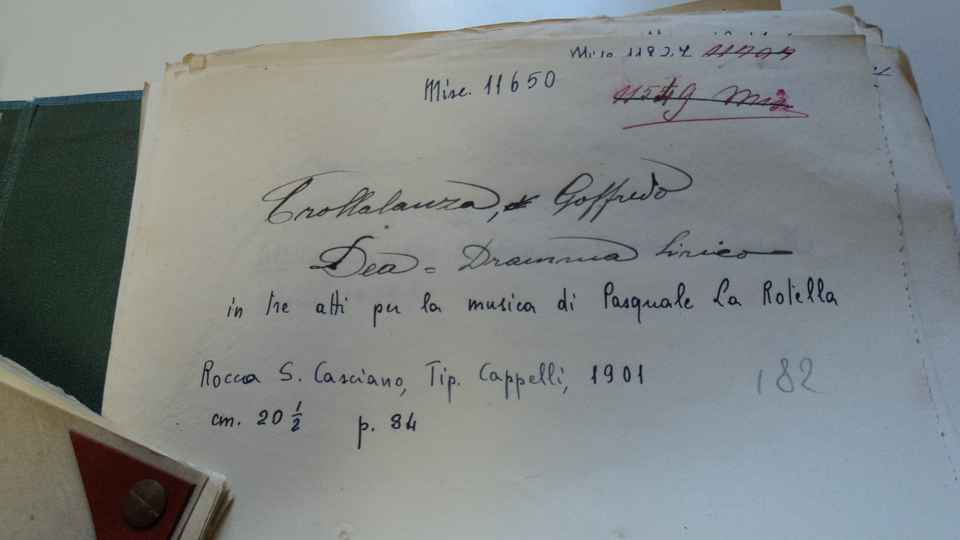 Misc. 11837 11704
Misc. 11650
11549 Misc
Trottalanza, Goffredo
Dea = Dramma lirico
in tre atti per la musica di Pasquale La Rotella
Rocca S. Casciano, Tip. Cappelli, 1901
182
cm. 20 1/2 p. 84